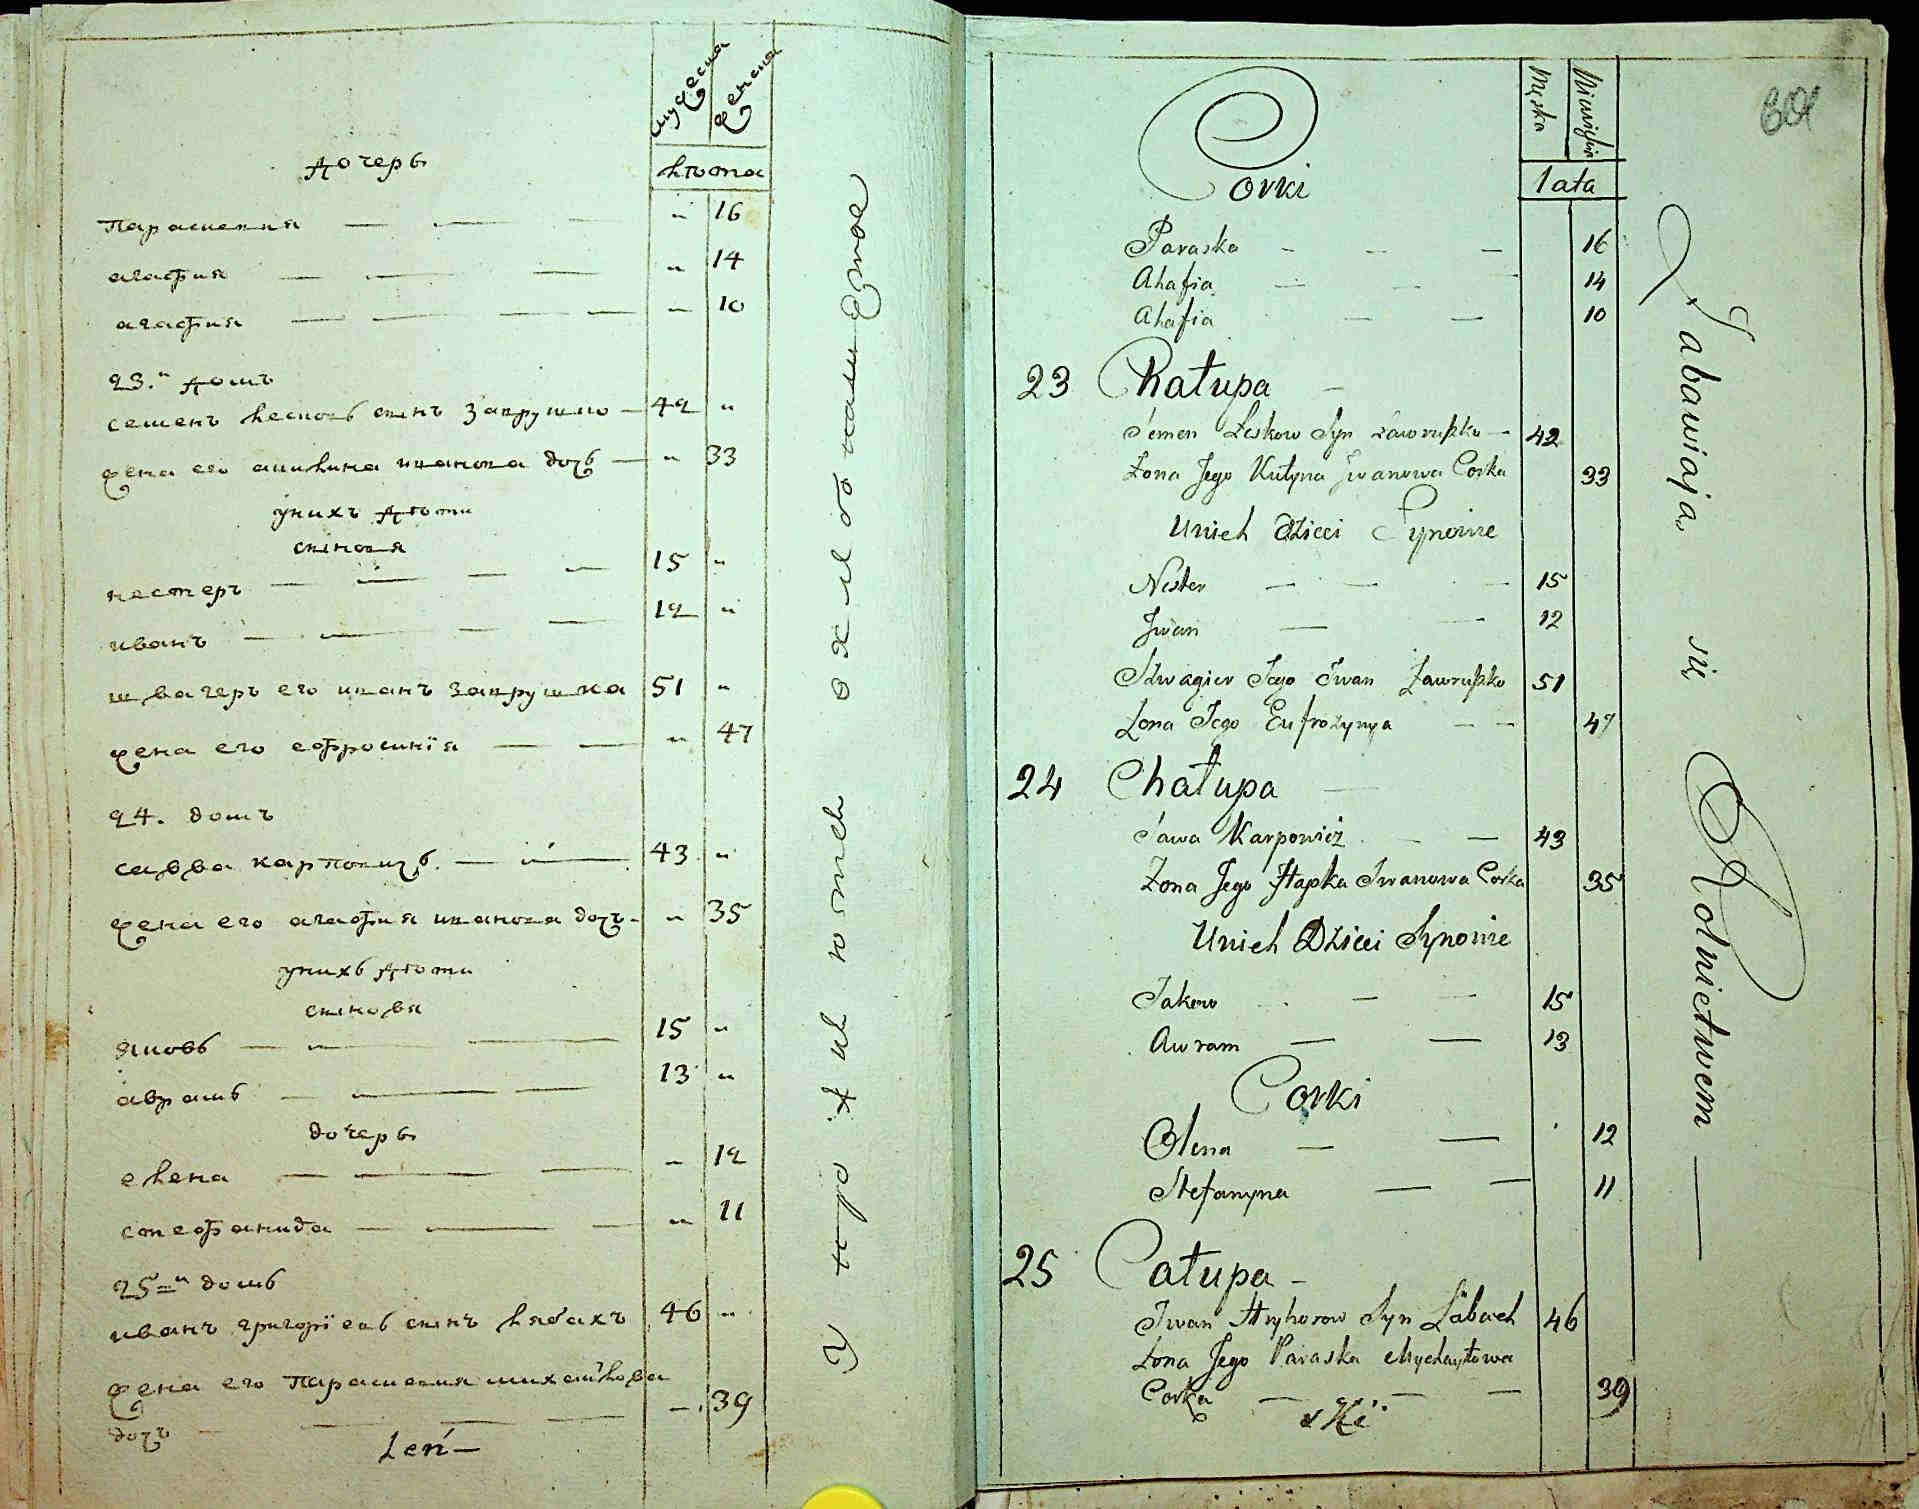 мужеска
женска
лѣта
дочерь
Параскевия — — — „ 16
агафия — — — „ 14
агафия — — — — „ 10
23.й домъ
семенъ лесковъ синъ заврушко — 42 „
жена его акилина иванова дочь — „ 33
унихъ дѣти
синовя
нестеръ — — — — 15 „
иванъ — — — — 12 „
швагеръ его иванъ заврушка 51 „
жена его ефросинїя — — „ 47
24. домъ
савва карповичъ. — — 43 „
жена его агафия иванова дочъ - „ 35
унихъ дѣти
синовя
яковъ — — — 15 „
аврамъ — — — 13 „
дочерь
елена — — — „ 12
стефанида — — — „ 11
25=й домъ
иванъ григорїевъ синъ лябахъ 46 „
жена его Параскевия михайлова
дочъ — — — „ 39
Leń —
Męska
Niewieskie
lata
Corki
Paraska — — — 16
Ahafia — — 14
Ahafia — — 10
23 Chałupa —
Semen Leskow Syn Zawruszko — 42
Żona Jego Kulyna Jwanowa Corka 33
Unich Dzieci Synowie
Nester — — — 15
Jwan — — 12
Szwagier Jego Iwan Zawruszko 51
Żona Jego Eufrozynya — — 47
24 Chałupa —
Sawa Karpowicz — — 43
Żona Jego Hapka Iwanowa Corka 35
Unich Dzieci Synowie
Jakow — — 15
Awram — — 13
Corki
Olena — — 12
Stefanyna — — 11
25 Całupa —
Iwan Hryhorow Syn Labach 46
Żona Jego Paraska Mychayłowa
Corka — — — 39
Zabawiaią się Rolnictwem —